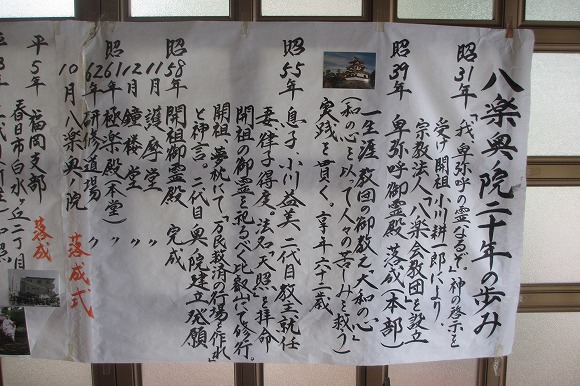 八楽奥ノ院二十年の歩み
昭31年「我、卑弥呼の霊なるぞ」神の啓示を
受け開祖小川耕一郎により、
宗教法人「八楽会教団」を設立
昭39年 卑弥呼御霊殿 落成(本部)
一生涯教団の御教え「大和の心」
(和の心を以て人々の苦しみを救う)
実践を貫く。享年六十二歳
昭55年 息子 小川益美 二代目教主就任
妻律子得度。法名「天照」を拝命
開祖の御霊を祀るべく比叡山で修行。
開祖夢枕にて「万民救済の行場を作れ」
と神言。二代目奥ノ院建立発願
昭58年 開祖御霊殿 完成
11月 護摩堂 〃
12月 鐘楼堂 〃
昭61年 極楽殿(本堂) 〃
62年 研修道場 〃
10月 八楽奥ノ院 落成式
平5年 福岡支部 落成
春日市白水ヶ丘二丁目